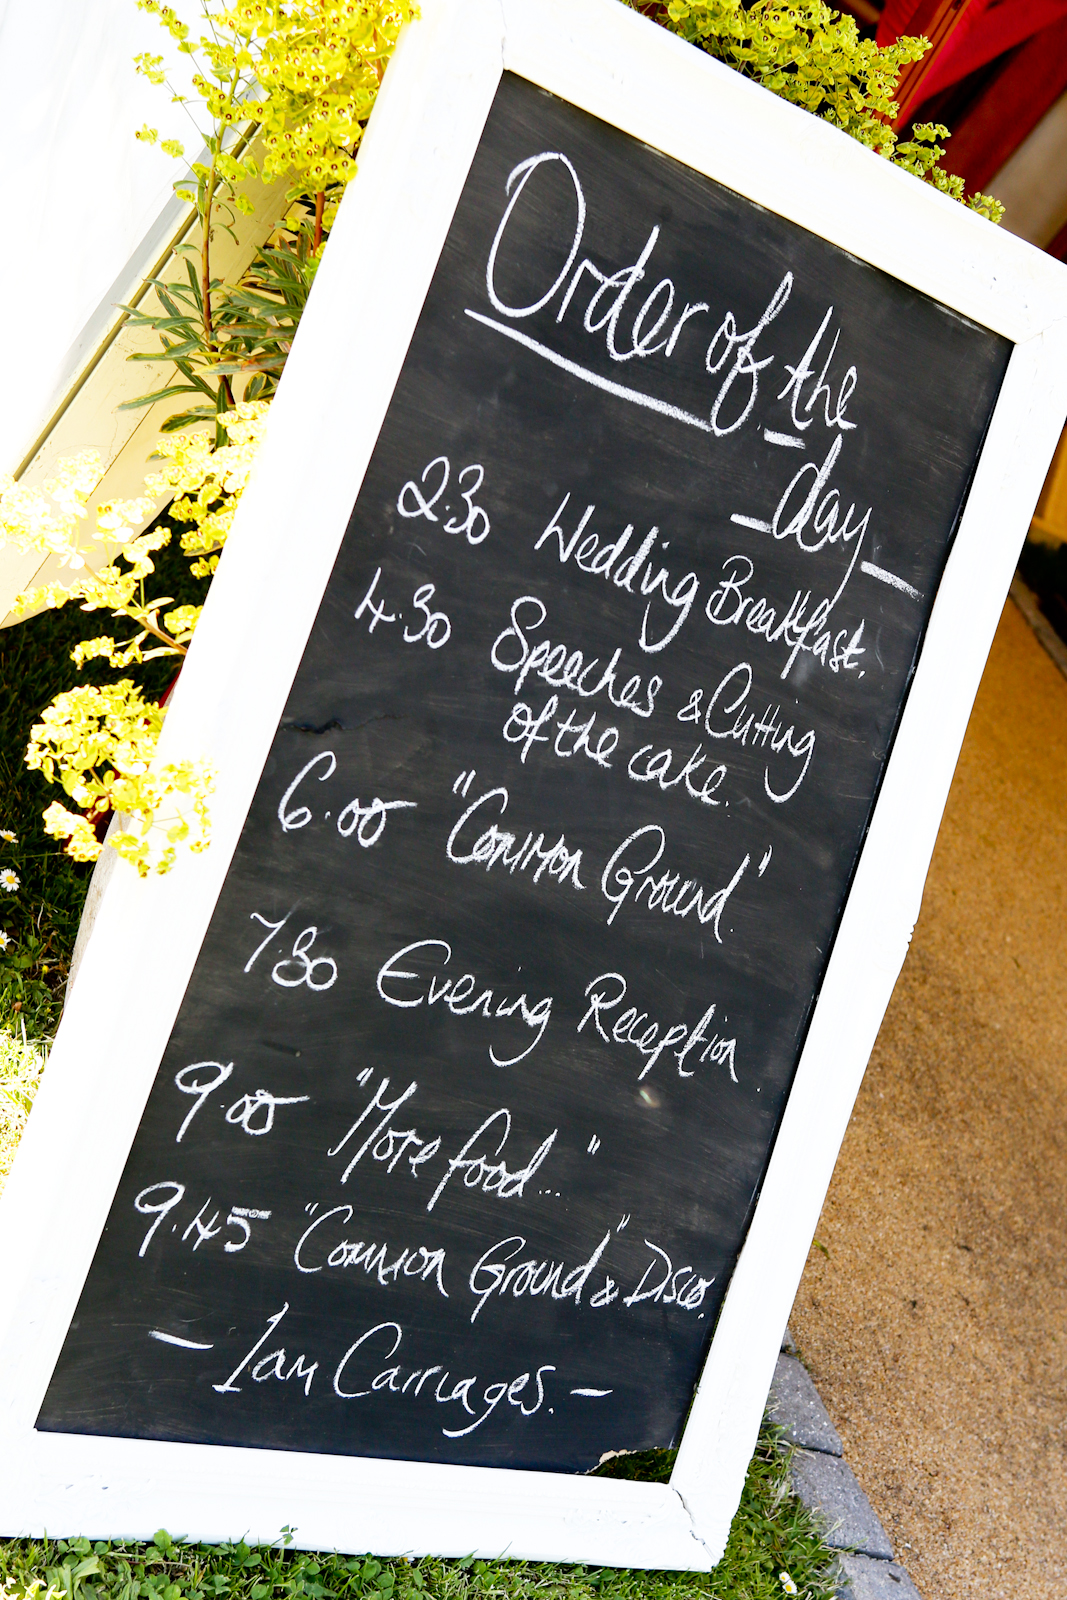 Order of the
day
2.30 Wedding Breakfast.
4.30 Speeches & Cutting
of the cake.
6.00 "Common Ground"
7.30 Evening Reception.
9.00 "More food..."
9.45 "Common Ground" & Disco.
- 1am Carriages. -